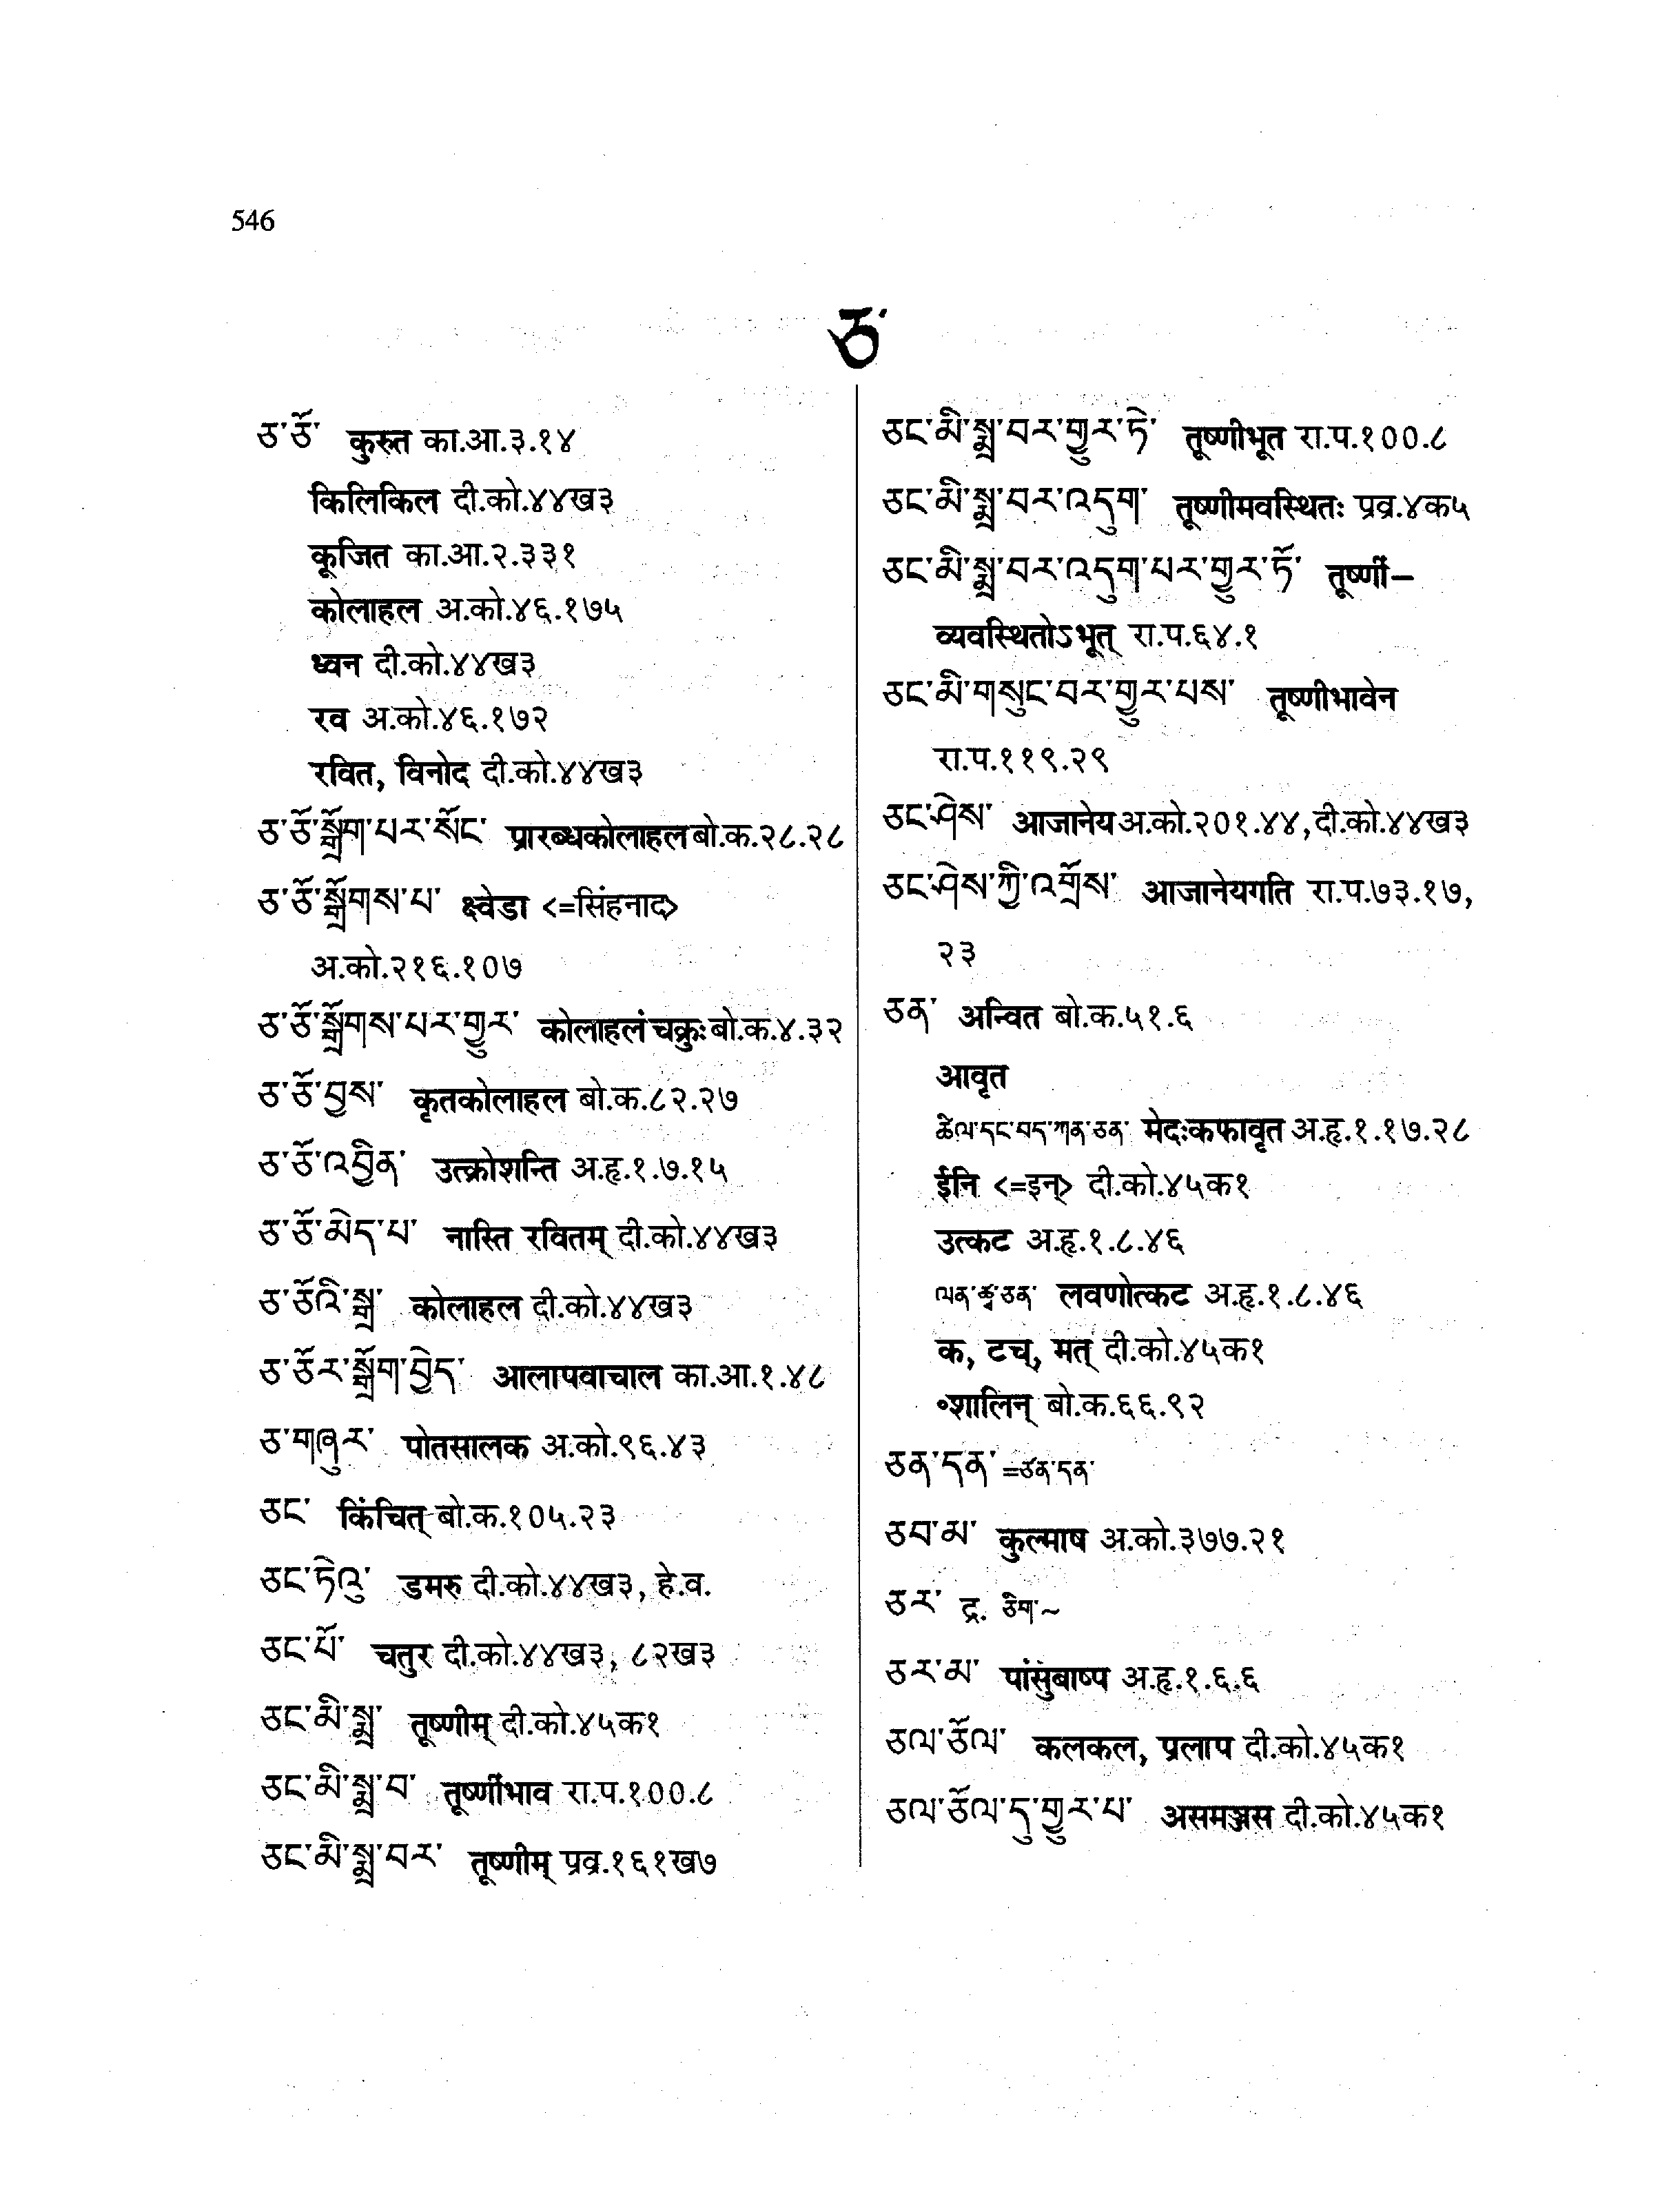 546
ཅ་
ཅ་ཅོ་ कुरुत का.आ.३.१४
किलिकिल दी.को.४४ख३
कूजित का.आ.२.३३१
कोलाहल अ.को.४६.१७५
ध्वन दी.को.४४ख३
रव अ.को.४६.१७२
रवित, विनोद दी.को.४४ख३
ཅ་ཅོ་སྒྲོག་པར་སོང་ प्रारब्धकोलाहल बो.क.२८.२८
ཅ་ཅོ་སྒྲོགས་པ་ क्ष्वेडा <=सिंहनाद>
अ.को.२१६.१०७
ཅ་ཅོ་སྒྲོགས་པར་གྱུར་ कोलाहलं चक्रुः बो.क.४.३२
ཅ་ཅོ་བྱས་ कृतकोलाहल बो.क.८२.२७
ཅ་ཅོ་འབྱིན་ उत्क्रोशन्ति अ.हृ.१.७.१५
ཅ་ཅོ་མེད་པ་ नास्ति रवितम् दी.को.४४ख३
ཅ་ཅོའི་སྒྲ་ कोलाहल दी.को.४४ख३
ཅ་ཅོར་སྒྲོག་བྱེད་ आलापवाचाल का.आ.१.४८
ཅ་གཞུར་ पोतसालक अ.को.९६.४३
ཅང་ किंचित् बो.क.१०५.२३
ཅང་ཏེའུ་ डमरु दी.को.४४ख३, हे.व.
ཅང་པོ་ चतुर दी.को.४४ख३, ८२ख३
ཅང་མི་སྨྲ་ तूष्णीम् दी.को.४५क१
ཅང་མི་སྨྲ་བ་ तूष्णींभाव रा.प.१००.८
ཅང་མི་སྨྲ་བར་ तूष्णीम् प्रव्र.१६१ख७
ཅང་མི་སྨྲ་བར་གྱུར་ཏེ་ तूष्णीभूत रा.प.१००.८
ཅང་མི་སྨྲ་བར་འདུག་ तूष्णीमवस्थितः प्रव्र.४क५
ཅང་མི་སྨྲ་བར་འདུག་པར་གྱུར་ཏོ་ तूष्णीं–
व्यवस्थितोऽभूत् रा.प.६४.१
ཅང་མི་གསུང་བར་གྱུར་པས་ तूष्णीभावेन
रा.प.११९.२९
ཅང་ཤེས་ आजानेय अ.को.२०१.४४,दी.को.४४ख३
ཅང་ཤེས་ཀྱི་འགྲོས་ आजानेयगति रा.प.७३.१७,
२३
ཅན་ अन्वित बो.क.५१.६
आवृत
ཚིལ་དང་བད་ཀན་ཅན་ मेदःकफावृत अ.हृ.१.१७.२८
ईनि <=इन्> दी.को.४५क१
उत्कट अ.हृ.१.८.४६
ལན་ཚྭ་ཅན་ लवणोत्कट अ.हृ.१.८.४६
क, टच्, मत् दी.को.४५क१
॰शालिन् बो.क.६६.९२
ཅན་དན་ =ཙན་དན་
ཅབ་མ་ कुल्माष अ.को.३७७.२१
ཅར་ द्र. ཅིག་~
ཅར་མ་ पांसुबाष्प अ.हृ.१.६.६
ཅལ་ཅོལ་ कलकल, प्रलाप दी.को.४५क१
ཅལ་ཅོལ་དུ་གྱུར་པ་ असमञ्जस दी.को.४५क१